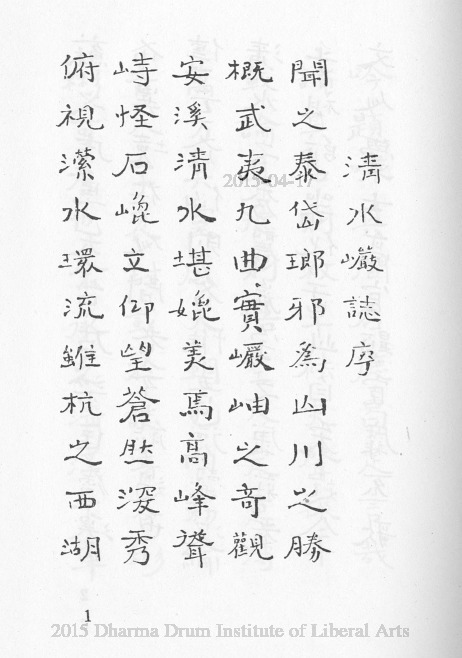 清水巖誌序
聞之泰岱瑯邪為山川之勝
概武夷九曲實巖岫之奇觀
安溪清水堪媲美焉高峰聳
峙怪石嵸立仰望蒼然深秀
俯視瀠水環流雖杭之西湖
1
2015-04-17
2015 Dharma Drum Institute of Liberal Arts